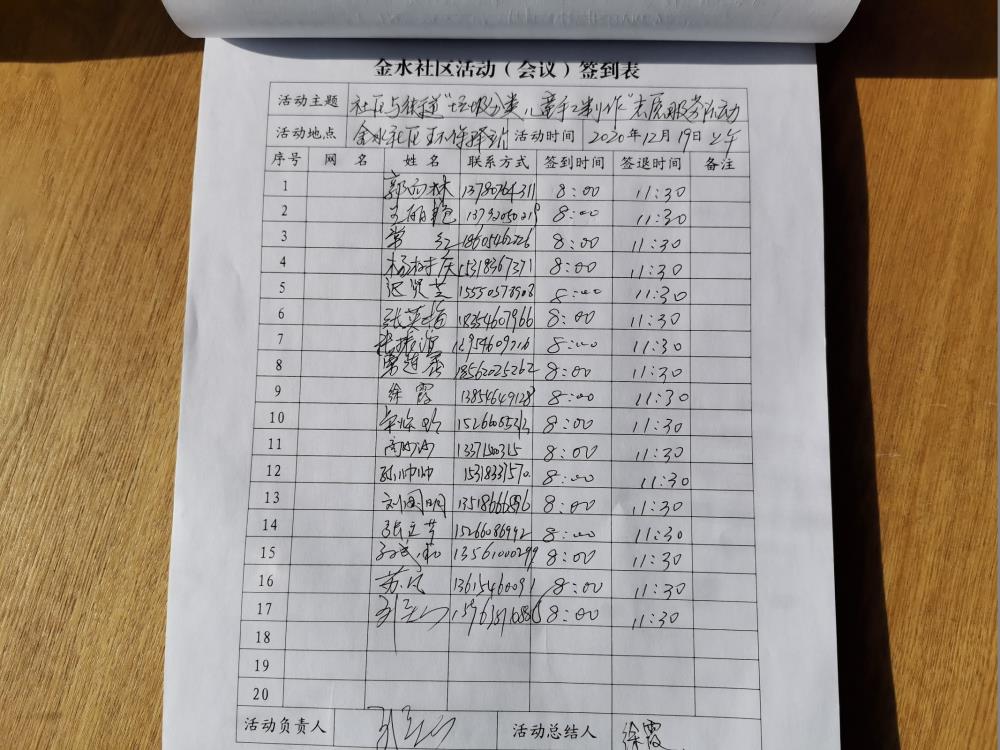 金水社区活动（会议）签到表
活动主题 社区与街道"垃圾分类儿童手工制作"志愿服务活动
活动地点 金水社区环保驿站 活动时间 2020年12月19日上午
序号 网 名 姓 名 联系方式 签到时间 签退时间 备注
1 13780764311 8:00 11:30
2 王丽艳 13792050219 8:00 11:30
3 常红 18605462226 8:00 11:30
4 杨树庆 15318367371 8:00 11:30
5 迟贤芝 15550573908 8:00 11:30
6 张英梅 18354607966 8:00 11:30
7 8:00 11:30
8 18562025262 8:00 11:30
9 徐霞 13854649128 8:00 11:30
10 8:00 11:30
11 8:00 11:30
12 孙帅帅 8:00 11:30
13 刘国明 8:00 11:30
14 张立芹 15266086992 8:00 11:30
15 13561000299 8:00 11:30
16 苏凡 8:00 11:30
17 8:00 11:30
18
19
20
活动负责人 活动总结人 徐霞